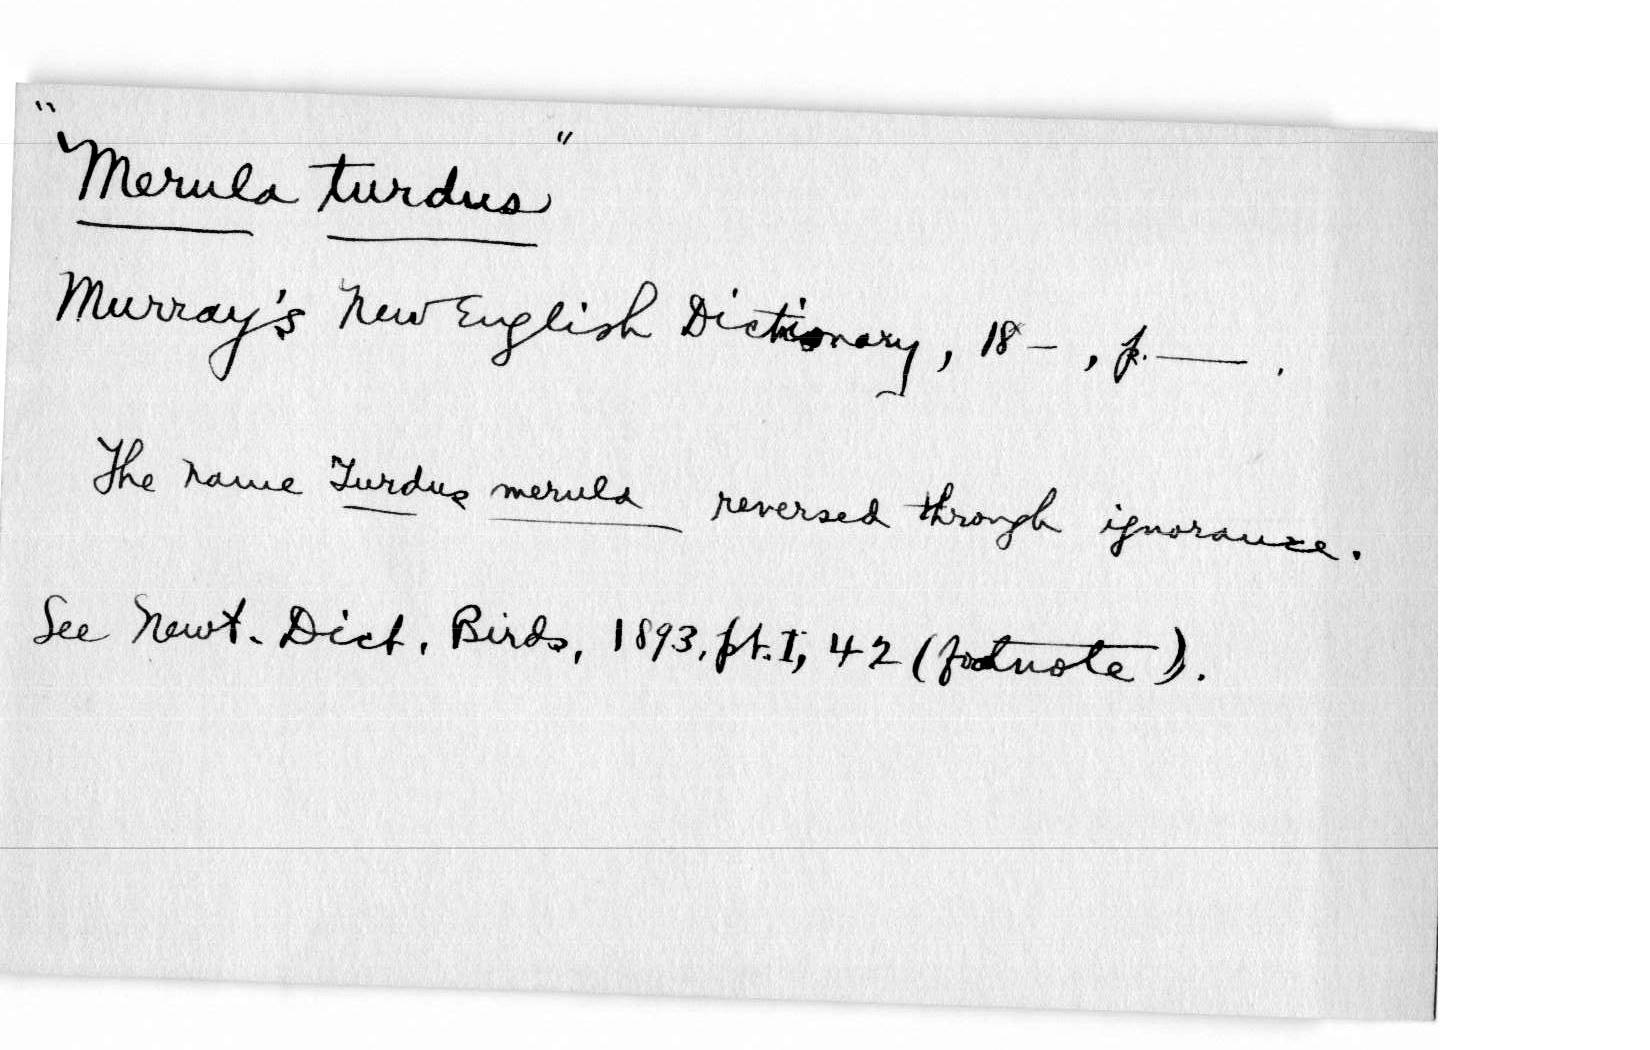 "Merula turdus"
Murray's New English Dictionary, 18—, p. ——.
The name Turdus merula reversed through ignorance.
See Newt. Dict. Birds, 1893, pt. I, 42 (footnote).